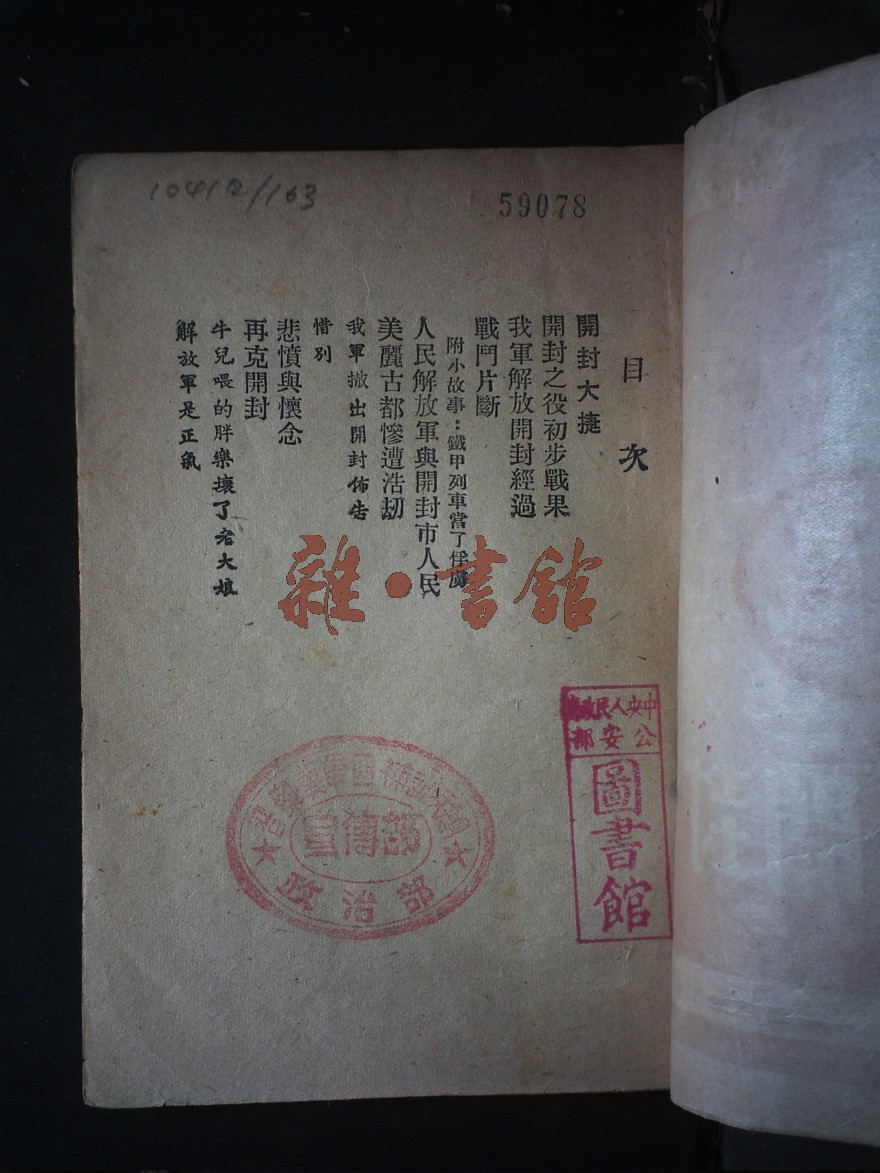 10412/163
59078
目次
開封大捷
開封之役初步戰果
我軍解放開封經過
戰鬥片斷
附小故事：鐵甲列車當了俘虜
人民解放軍與開封市人民
美麗古都慘遭浩劫
我軍撤出開封佈告
惜別
悲憤與懷念
再克開封
牛兒喂的胖樂壞了老大娘
解放軍是正氣
雜·書館
中央人民政府
公安部
圖書館
宣傳部
政治部